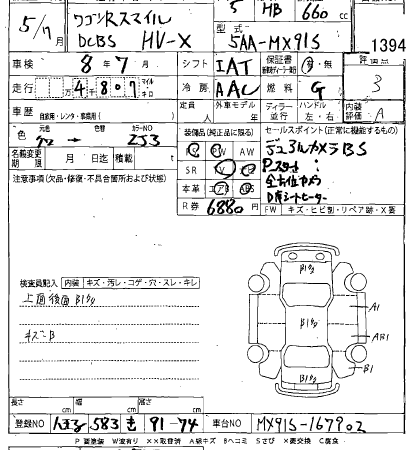 ワゴンRスマイル 5 HB 660 cc
5/7月 DCBS HV-X 型式 5AA-MX91S 1394
車検 8年7月 シフト IAT 保証書 評価点 3
走行 4千807 マイル キロ 冷房 AAC 燃料 G 内装評価 A
車歴 自家用・レンタ・事業用( ) 定員 人 外車モデル 年 ディーラー 並行 ハンドル 左・右
色 元色 色替 カラーNO ZJ3 装備品(純正品に限る) セールスポイント(正常に機能するもの)
PS PW AW デュアルカメラBS
名義変更期限 月 日迄 積載 t SR TV PスタートS
注意事項(欠品・修復・不具合箇所および状態) 本革 エアB ABS 全方位カメラ
R券 6880 D席シートヒーター
FW キズ・ヒビ割・リペア跡・X要
検査員記入 内装 キズ・汚レ・コゲ・穴・スレ・キレ
上面後面B1多
キズB
B1多
B1多
B1多
A1
AB1
B1
長さ cm 幅 cm 高さ cm
登録NO 583 き 91-74 車台NO MX91S-167902
P 要塗装 W波有り ××取替済 A線キズ Bヘコミ Sさび ×要交換 C腐食